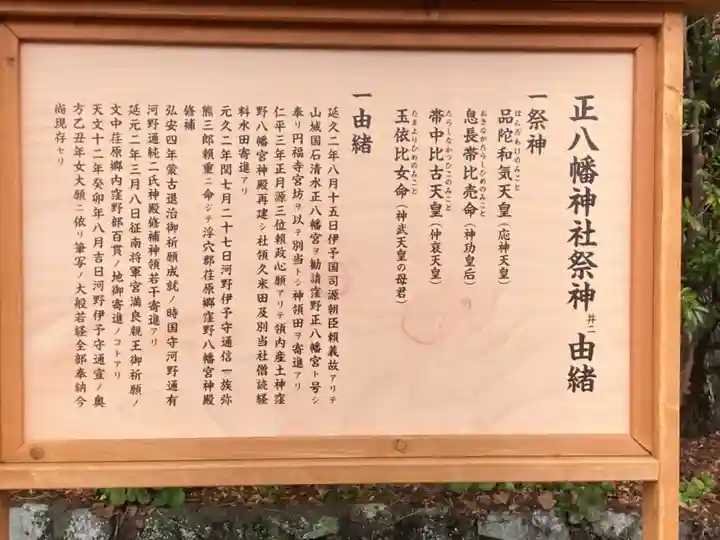 正八幡神社祭神并ニ由緒
一祭神
品陀和気天皇（応神天皇）
息長帯比売命（神功皇后）
帯中比古天皇（仲哀天皇）
玉依比女命（神武天皇の母君）
一由緒
延久二年八月十五日伊予国司源朝臣頼義故アリテ
山城国石清水正八幡宮ヲ勧請窪野正八幡宮ト号シ
奉リ円福寺宮坊ヲ以テ別当トシ神領田ヲ寄進アリ
仁平三年正月源三位頼政心願アリテ領内産土神窪
野八幡宮神殿再建シ社領久米田及別当社僧読経
料水田寄進アリ
元久二年閏七月二十七日河野伊予守通信一族弥
熊三郎頼重ニ命ジテ浮穴郡荏原郷窪野八幡宮神殿
修補
弘安四年蒙古退治御祈願成就ノ時国守河野通有
河野通純二氏神殿修補神領若干寄進アリ
延元二年三月八日征南将軍宮満良親王御祈願ノ
文中荏原郷内窪野部百貫ノ地御寄進ノコトアリ
天文十二年癸卯年八月吉日河野伊予守通宣ノ奥
方乙丑年女大願ニ依リ筆写ノ大般若経全部奉納今
尚現存セリ